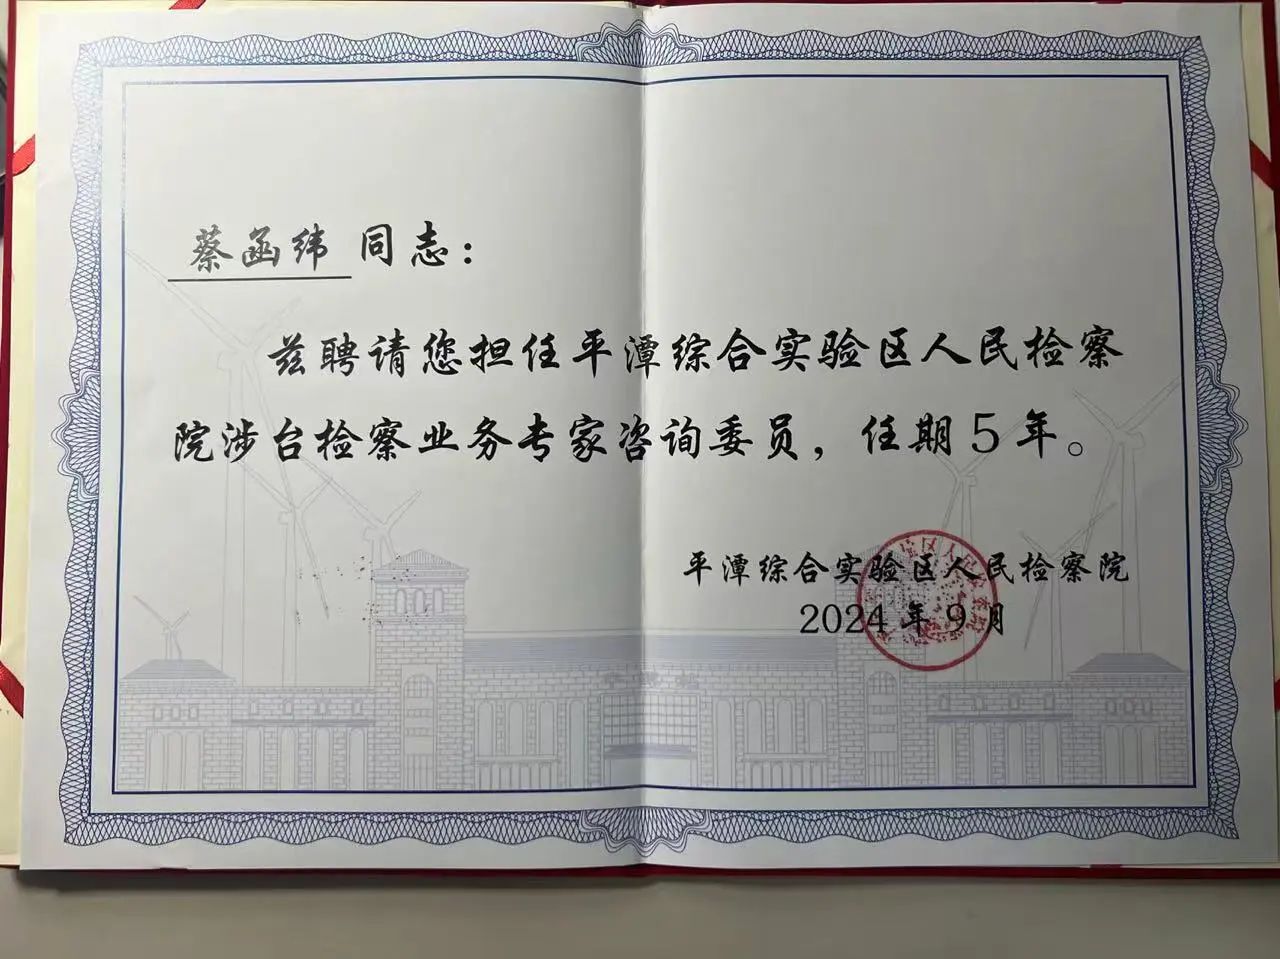 蔡函纬 同志：
兹聘请您担任平潭综合实验区人民检察
院涉台检察业务专家咨询委员，任期5年。
平潭综合实验区人民检察院
2024年9月